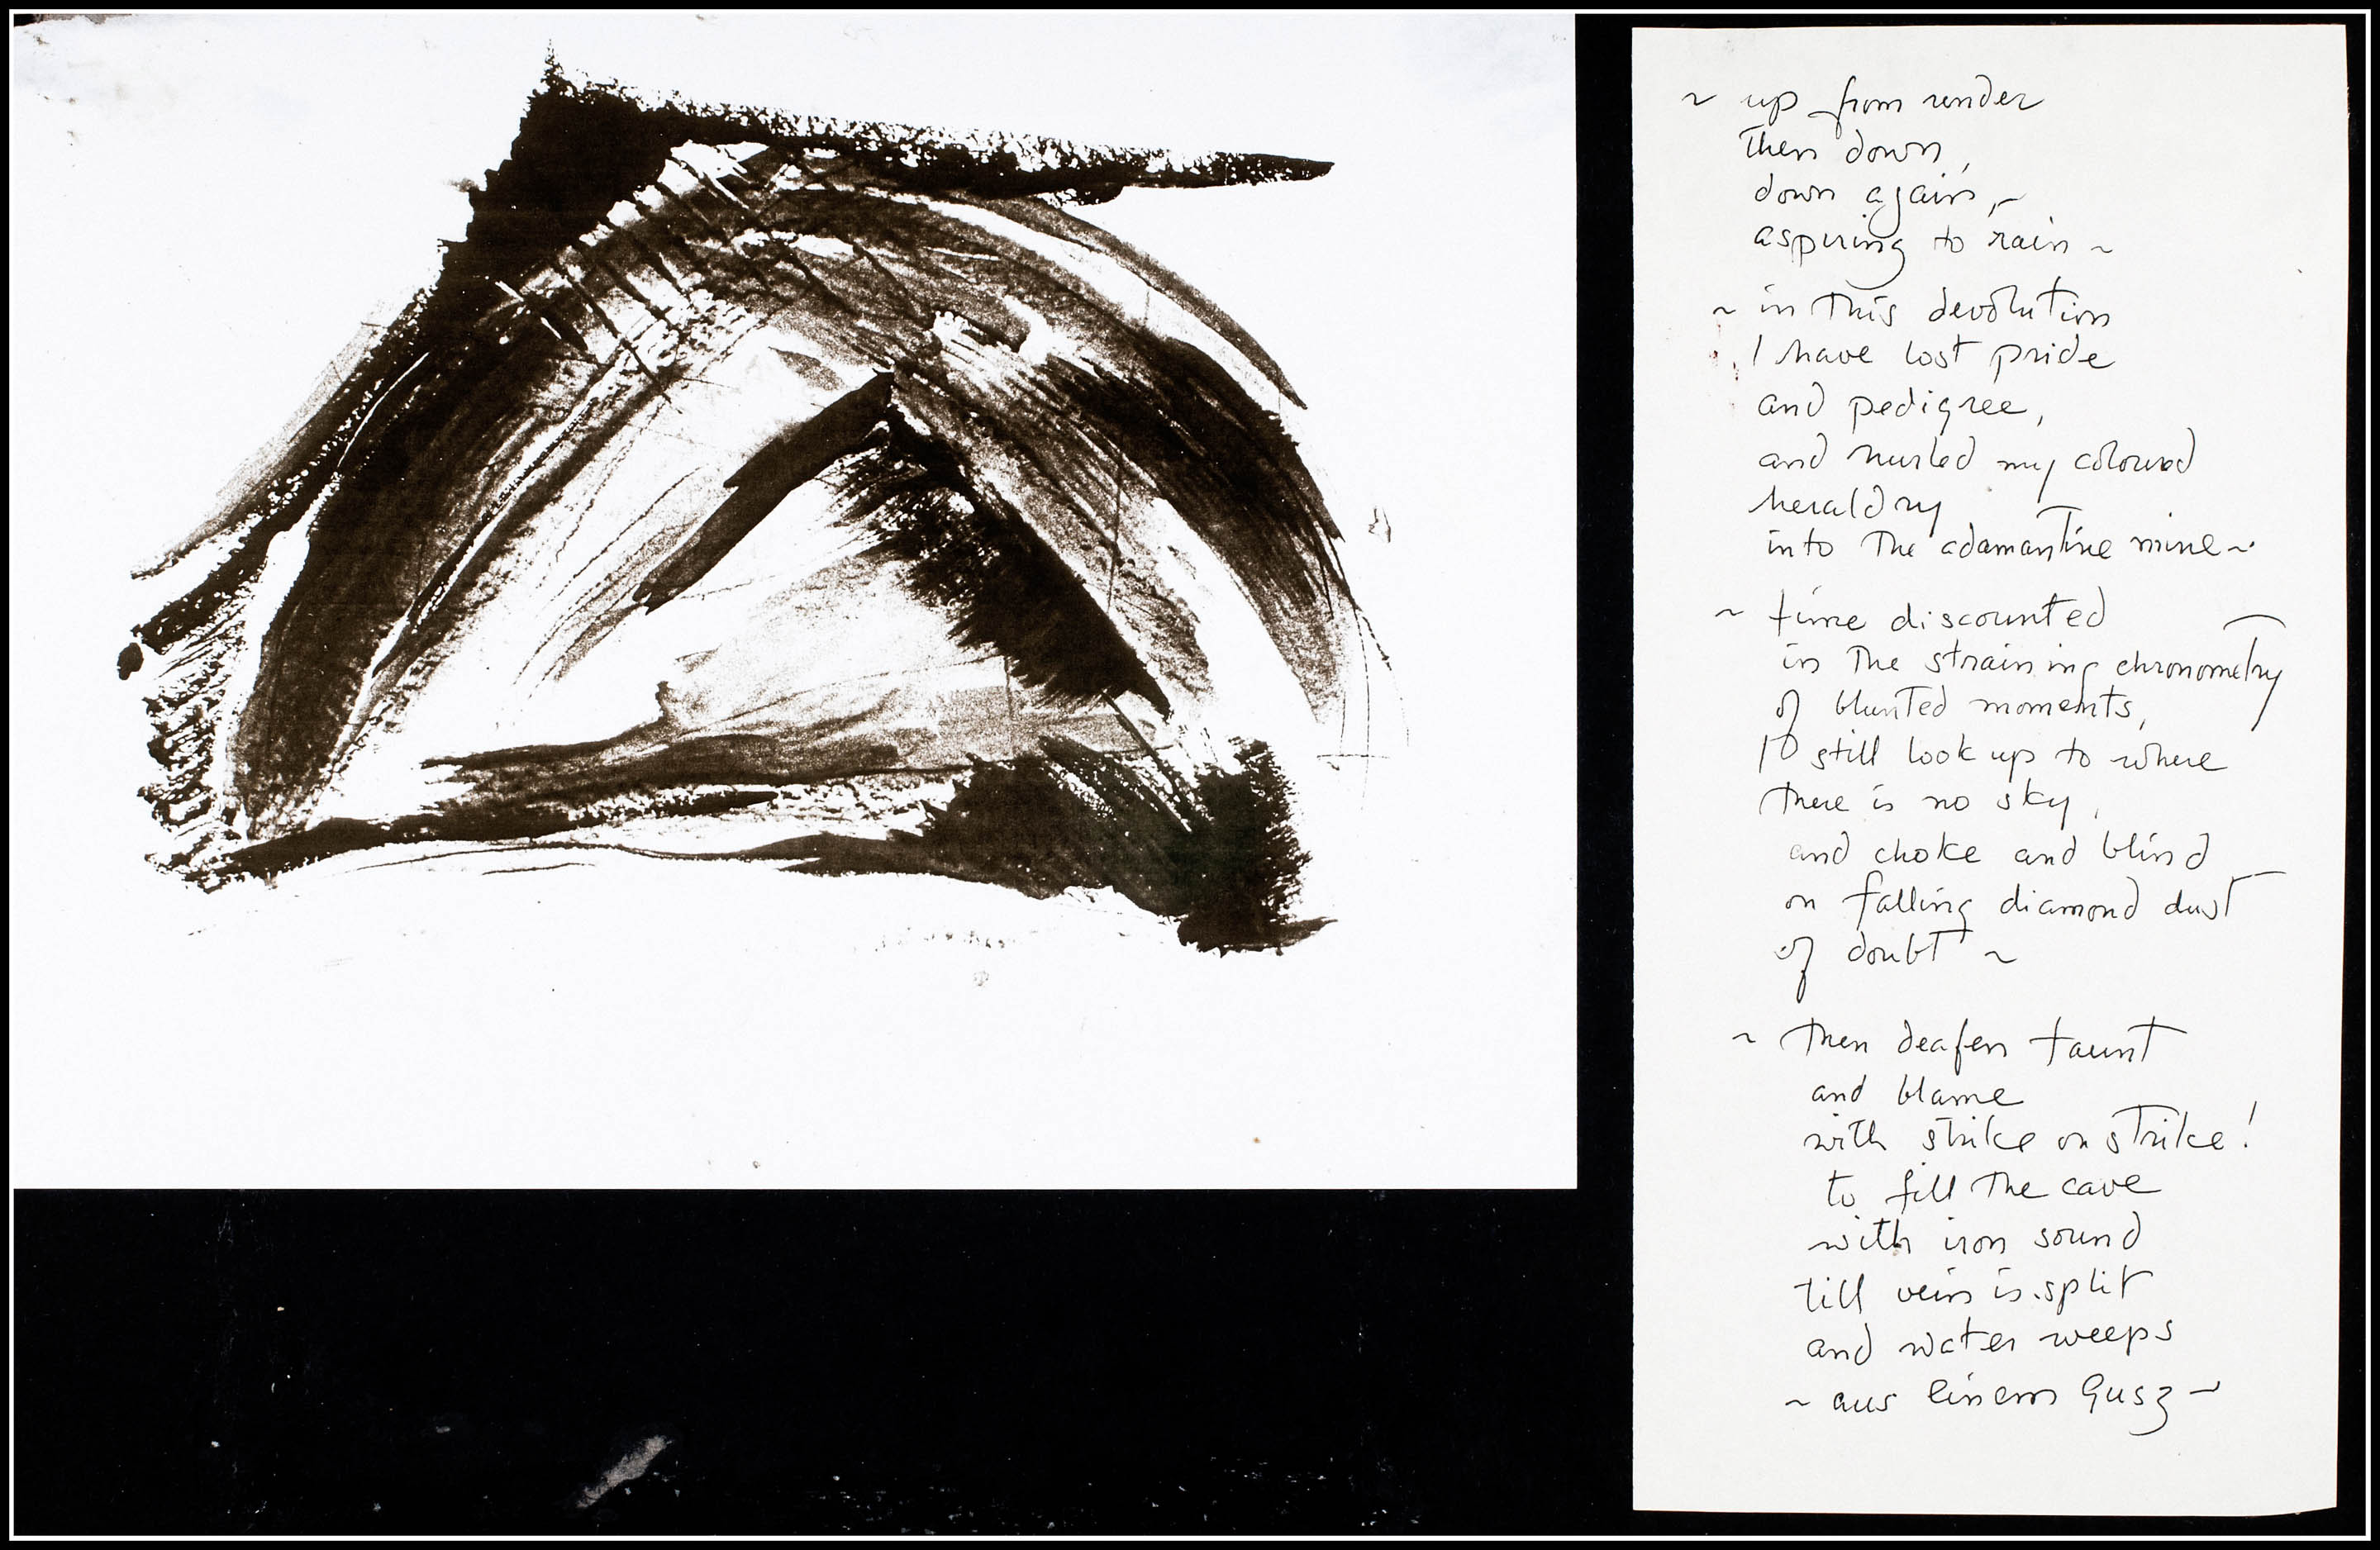 ~ up from render
then down,
down again, ~
aspiring to rain ~
~ in this devolution
I have lost pride
and pedigree,
and hurled my coloured
heraldry
into the adamantine mine ~
~ time discounted
in the straining chronometry
of blunted moments,
I still look up to where
there is no sky,
and choke and blind
on falling diamond dust
of doubt ~
~ then deafen taunt
and blame
with strike on strike!
to fill the cave
with iron sound
till vein is split
and water weeps
~ aus einem Gusz ~